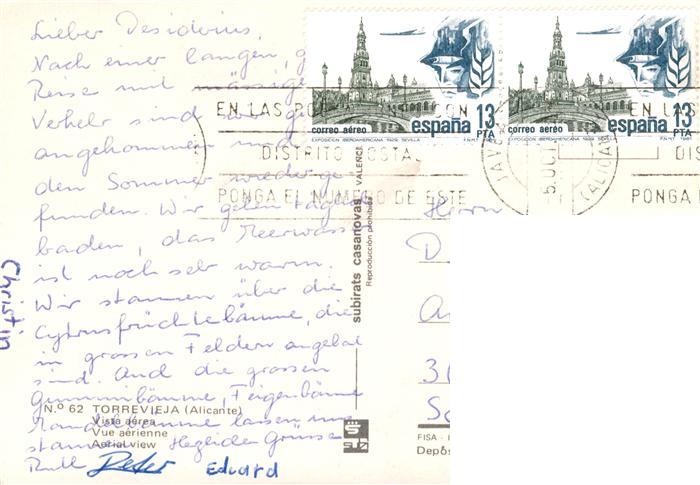 Lieber Desiderius,
Nach einer langen, g
Reise mit ässige
Verkehr sind wir ge
angekommen
den Sommer wieder ge-
funden. Wir gehen täglich
baden, das Meerwass
ist noch sehr warm.
Wir staunen über die
Cytrusfrüchtebäume, die
in grossen Feldern angebaut
sind. Auch die grossen
Gummibäume, Feigenbäume
Mandelbäume lassen uns
staunen. Herzliche Grüsse
Ruth Peter Eduard
Christin
Nº 62 TORREVIEJA (Alicante)
Vista aérea
Vue aérienne
Aerial view
subirats casanovas VALENCI
Reproducción prohibida
correo aéreo españa 13 PTA
EXPOSICION IBEROAMERICANA 1929. SEVILLA F.N.M.T. 1981
correo aéreo españa 13 PTA
EXPOSICION IBEROAMERICANA 1929. SEVILLA F.N.M.T. 1981
EN LAS PO CON
DISTRITO POSTAL
PONGA EL NUMERO DE ESTE
JAV
(ALICAN
EN LA
DIS
PONGA
Herrn
D
An
3
S
FISA - I
Depós